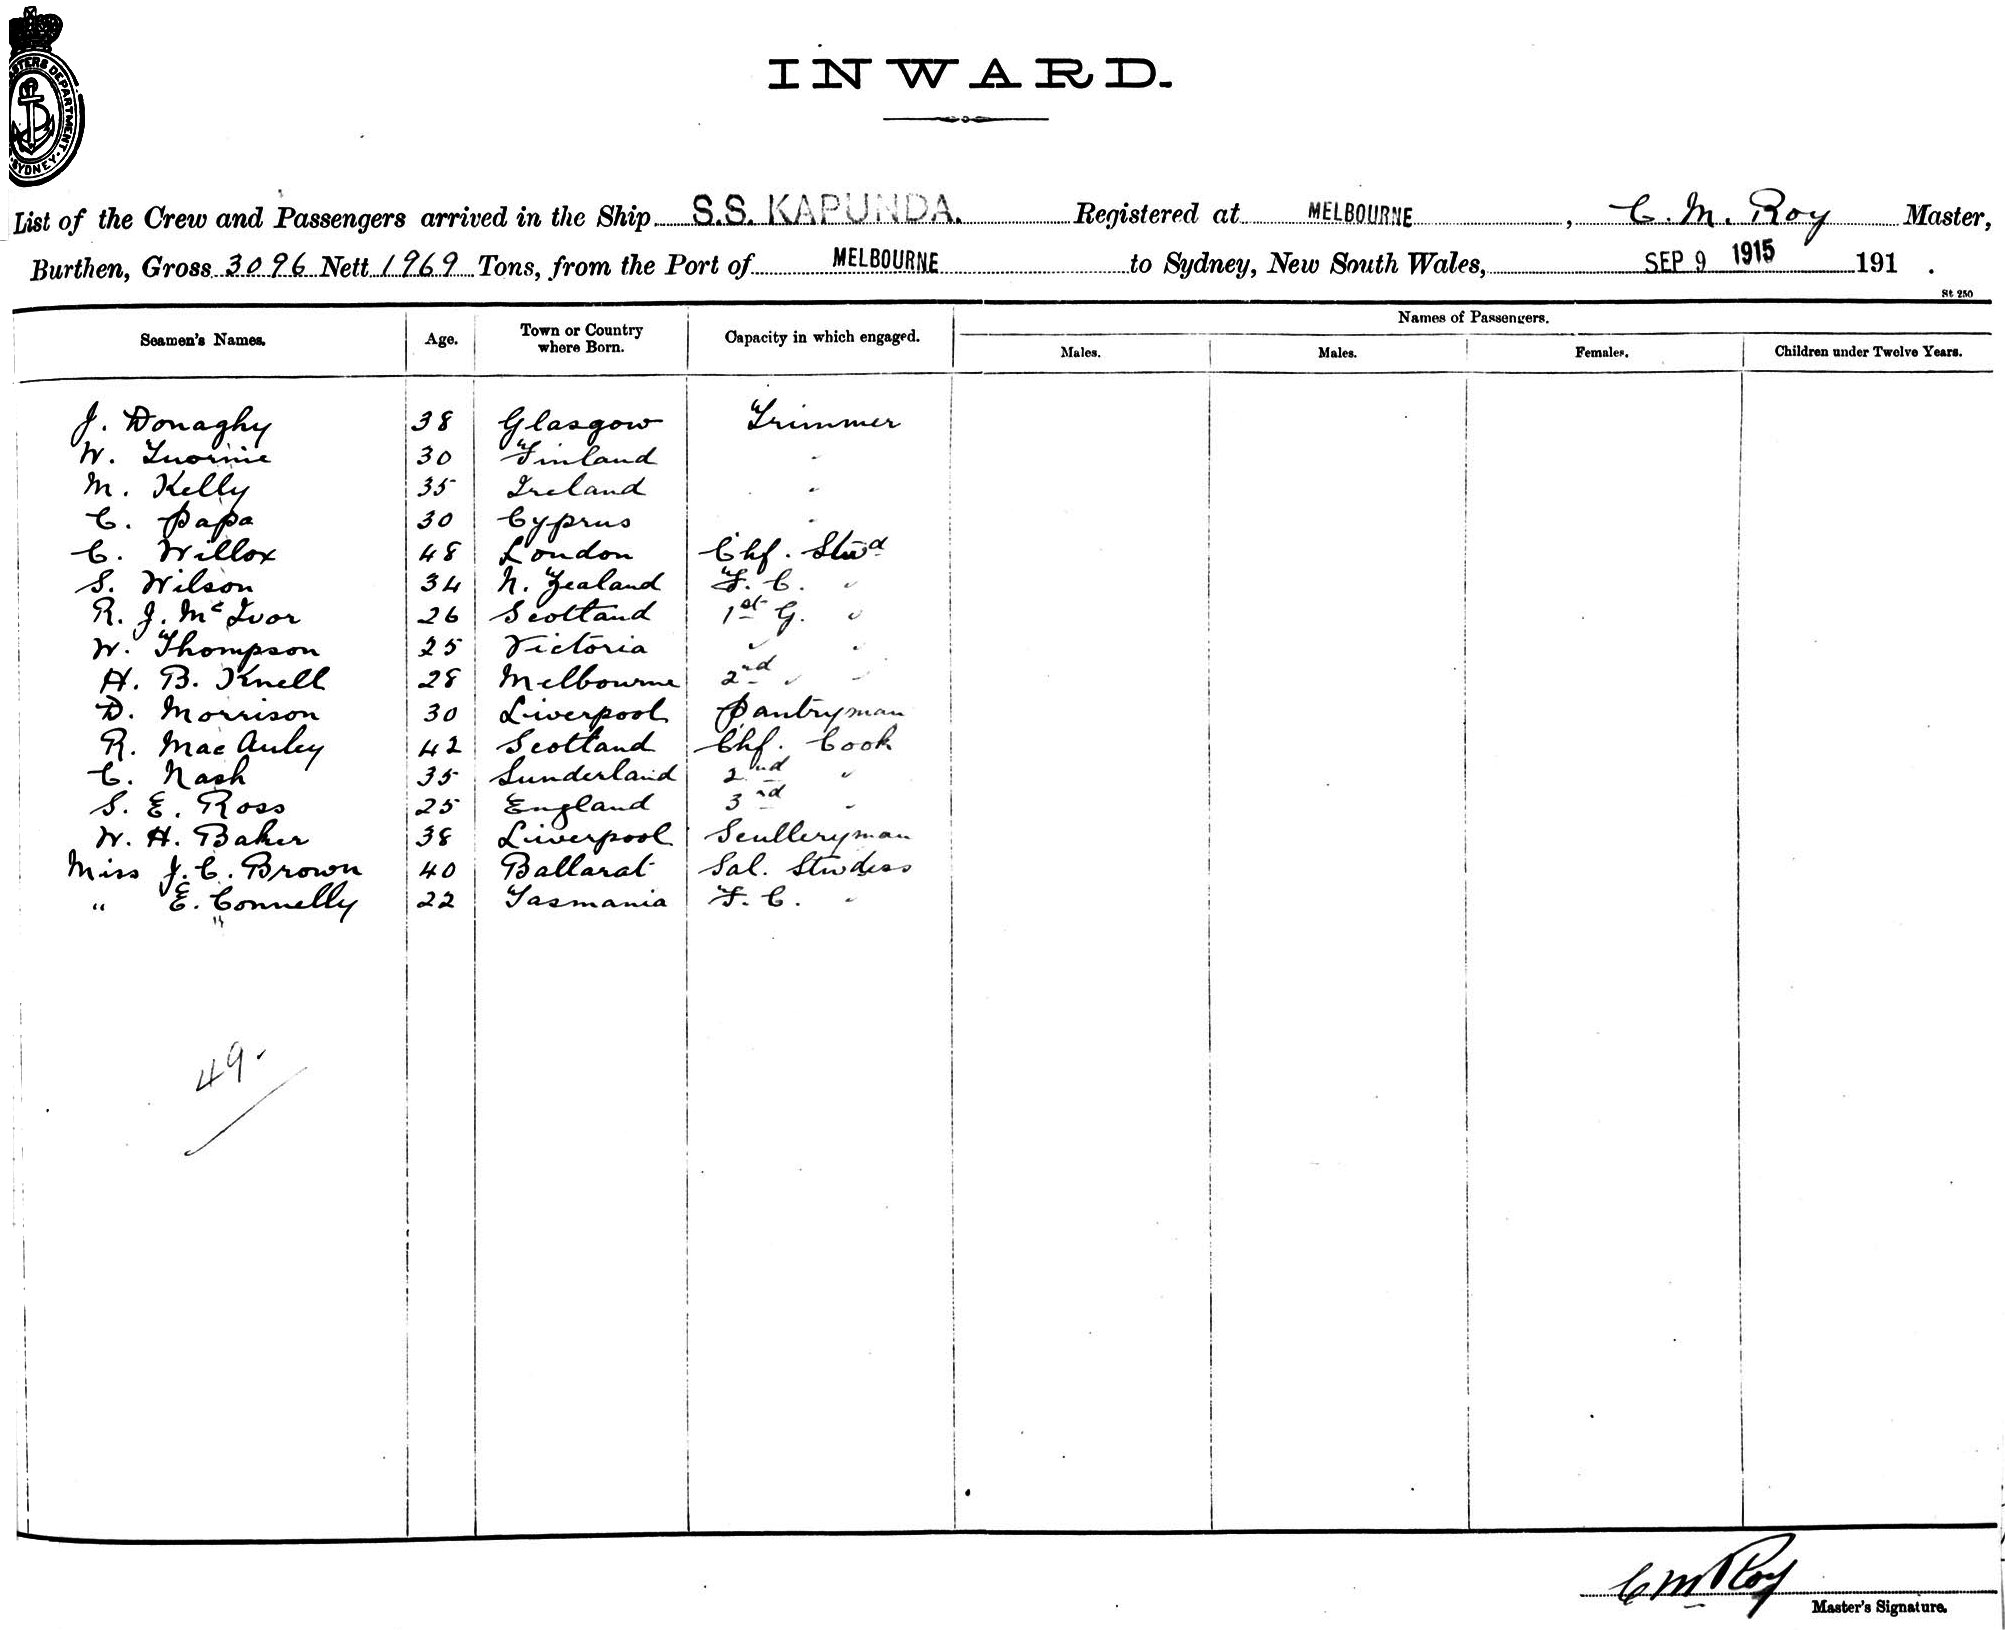 MASTERS DEPARTMENT. SYDNEY.
INWARD.
List of the Crew and Passengers arrived in the Ship S.S. KAPUNDA. Registered at MELBOURNE, C. M. Roy Master,
Burthen, Gross 3096 Nett 1969 Tons, from the Port of MELBOURNE to Sydney, New South Wales, SEP 9 1915 191 .
St 250
Seamen's Names. Age. Town or Country where Born. Capacity in which engaged. Names of Passengers.
Males. Males. Females. Children under Twelve Years.
J. Donaghy 38 Glasgow Trimmer
W. 30 Finland "
M. Kelly 35 Ireland "
C. Papa 30 Cyprus "
C. Willox 48 London Chf. Stwd
S. Wilson 34 N. Zealand F. C. "
R. J. McIvor 26 Scotland 1st G. "
W. Thompson 25 Victoria " "
H. B. Knell 28 Melbourne 2nd " "
D. Morrison 30 Liverpool Pantryman
R. MacAuley 42 Scotland Chf. Cook
C. Nash 35 Sunderland 2nd "
S. E. Ross 25 England 3rd "
W. H. Baker 38 Liverpool Sculleryman
Miss J. C. Brown 40 Ballarat Sal. Stwdess
" E. Connelly 22 Tasmania F. C. "
49.
C M Roy
Master's Signature.